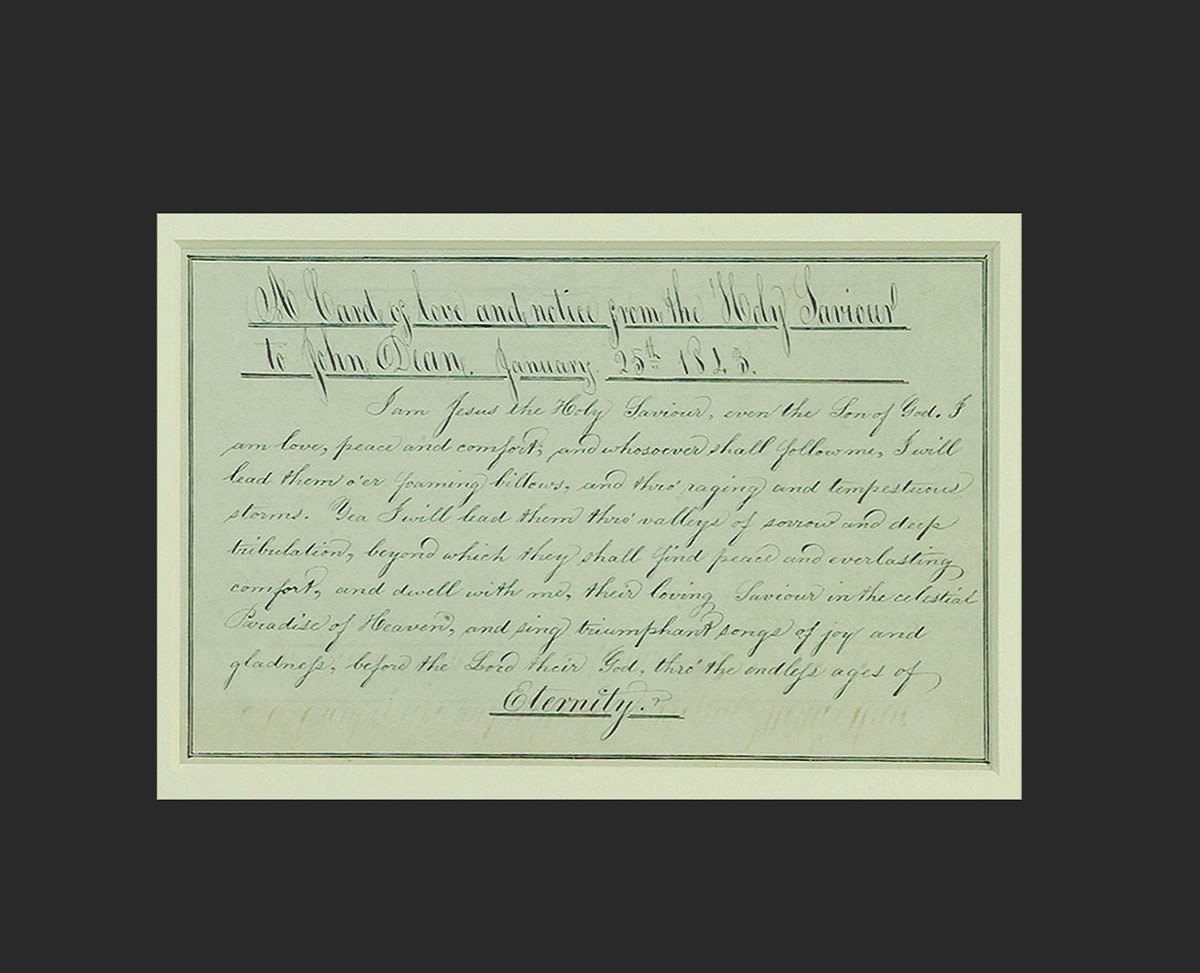 A Card of love and notice from the Holy Saviour
to John Dean. January. 25th 1843.
I am Jesus the Holy Saviour, even the Son of God. I
am love, peace and comfort; and whosoever shall follow me, I will
lead them o'er foaming billows, and thro' raging and tempestuous
storms. Yea I will lead them thro' valleys of sorrow and deep
tribulation, beyond which they shall find peace and everlasting
comfort, and dwell with me, their loving Saviour in the celestial
Paradise of Heaven, and sing triumphant songs of joy and
gladneſs, before the Lord their God, thro' the endleſs ages of
Eternity.